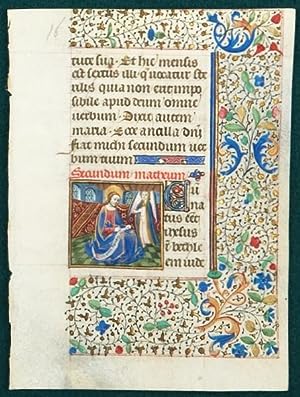 16
tute sua. Et hic mensis
est sextus illi q̄ vocatur ste
rilis quia non erit impo
sibile apud deum omne
verbum. Dixit autem
maria. Ecce ancilla dn̄i
fiat michi secundum ver
bum tuum.
Secundum matheum
Cu
natus ess
ihesus
in bethle
em iude